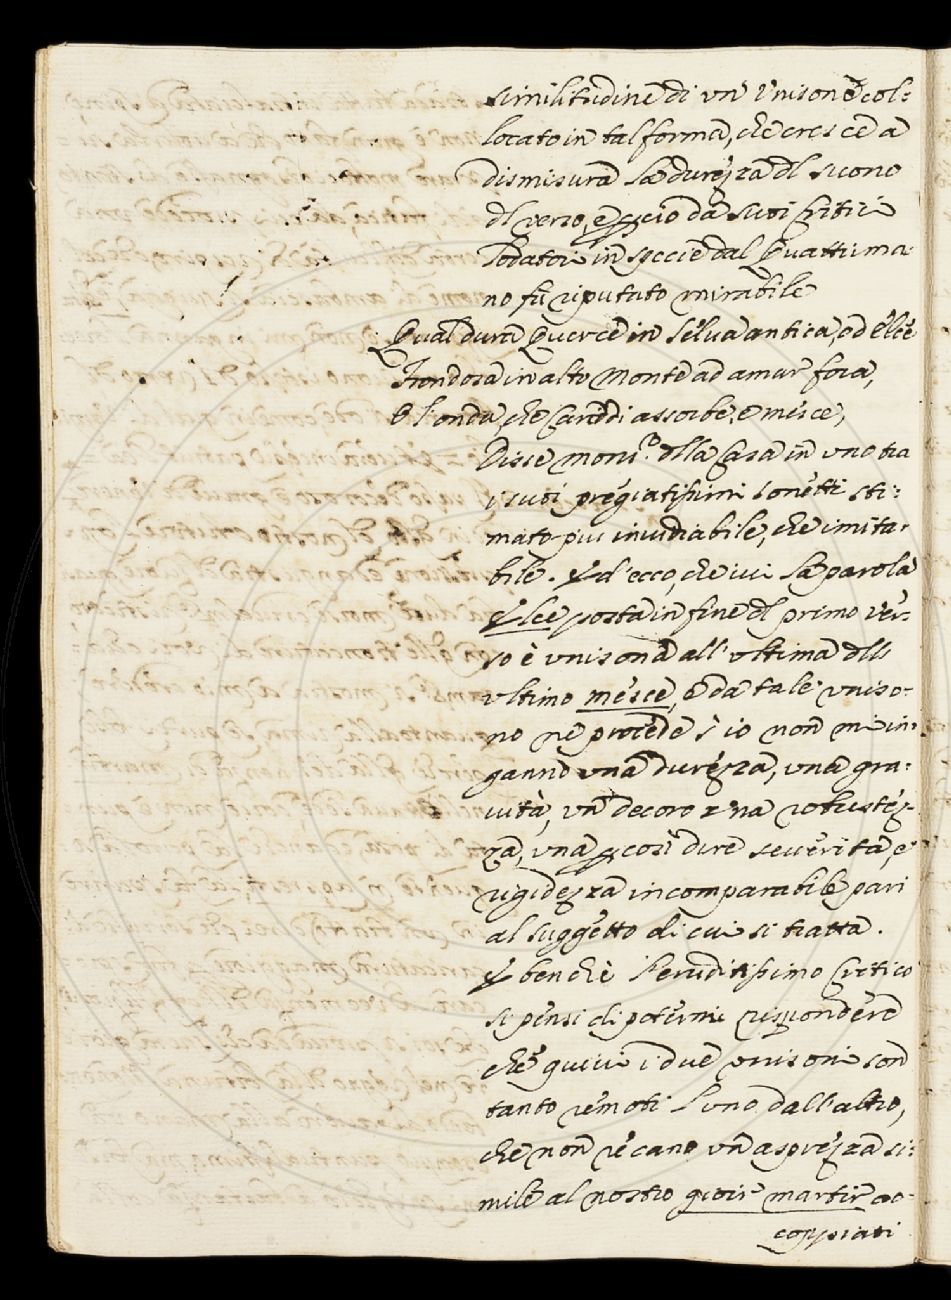 similitudine di un' Unisono col:
locato in tal forma, che cresce a
dismisura la durezza dl suono
dl verso, e pciò da suoi Critici
Lodatori in specie dal Quattrima:
no fu riputato mirabile
Qual dura Quercie in selva antica, od elce
Frondosa in alto Monte ad amar fora,
O l'onda, che Cariddi assorbe, e mésce,
Disse Mons.r dlla Casa in uno tra
i suoi pregiatissimi sonetti sti:
mato piu invidiabile, che imita:
bile. Ed ecco, che ivi la parola
Elce posta in fine dl primo ver:
so è unisona all'ultima dll
ultimo mésce, e da tale uniso:
no ne procede s'io non m'in:
ganno una durezza, una gra:
vità, un decoro una robustéz:
za, una p così dire severità, e
rigidezza incomparabile pari
al suggetto di cui si tratta.
E benchè l'eruditissimo Critico
si pensi di potermi rispondere
che quivi i due unisoni son
tanto remoti l'uno dall'altro,
che non recano un asprezza si:
mile al nostro gioir martir ac:
coppiati